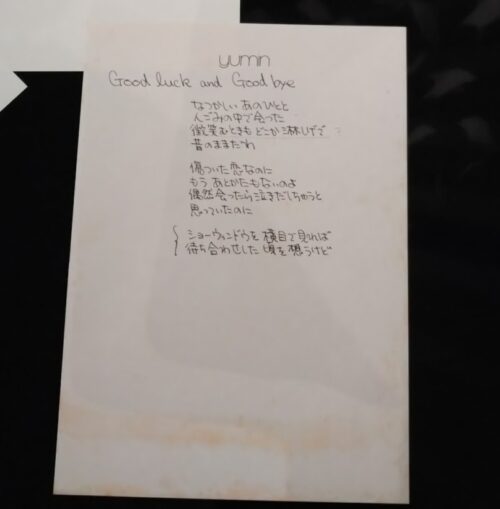 yumin
Good luck and Good bye
なつかしい あのひとと
人ごみの中で会った
微笑むときも どこか淋しげで
昔のままだわ
傷ついた恋なのに
もう あとかたもないのよ
偶然会ったら泣きだしちゃうと
思っていたのに
ショーウィンドウを横目で見れば
待ち合わせした頃を想うけど